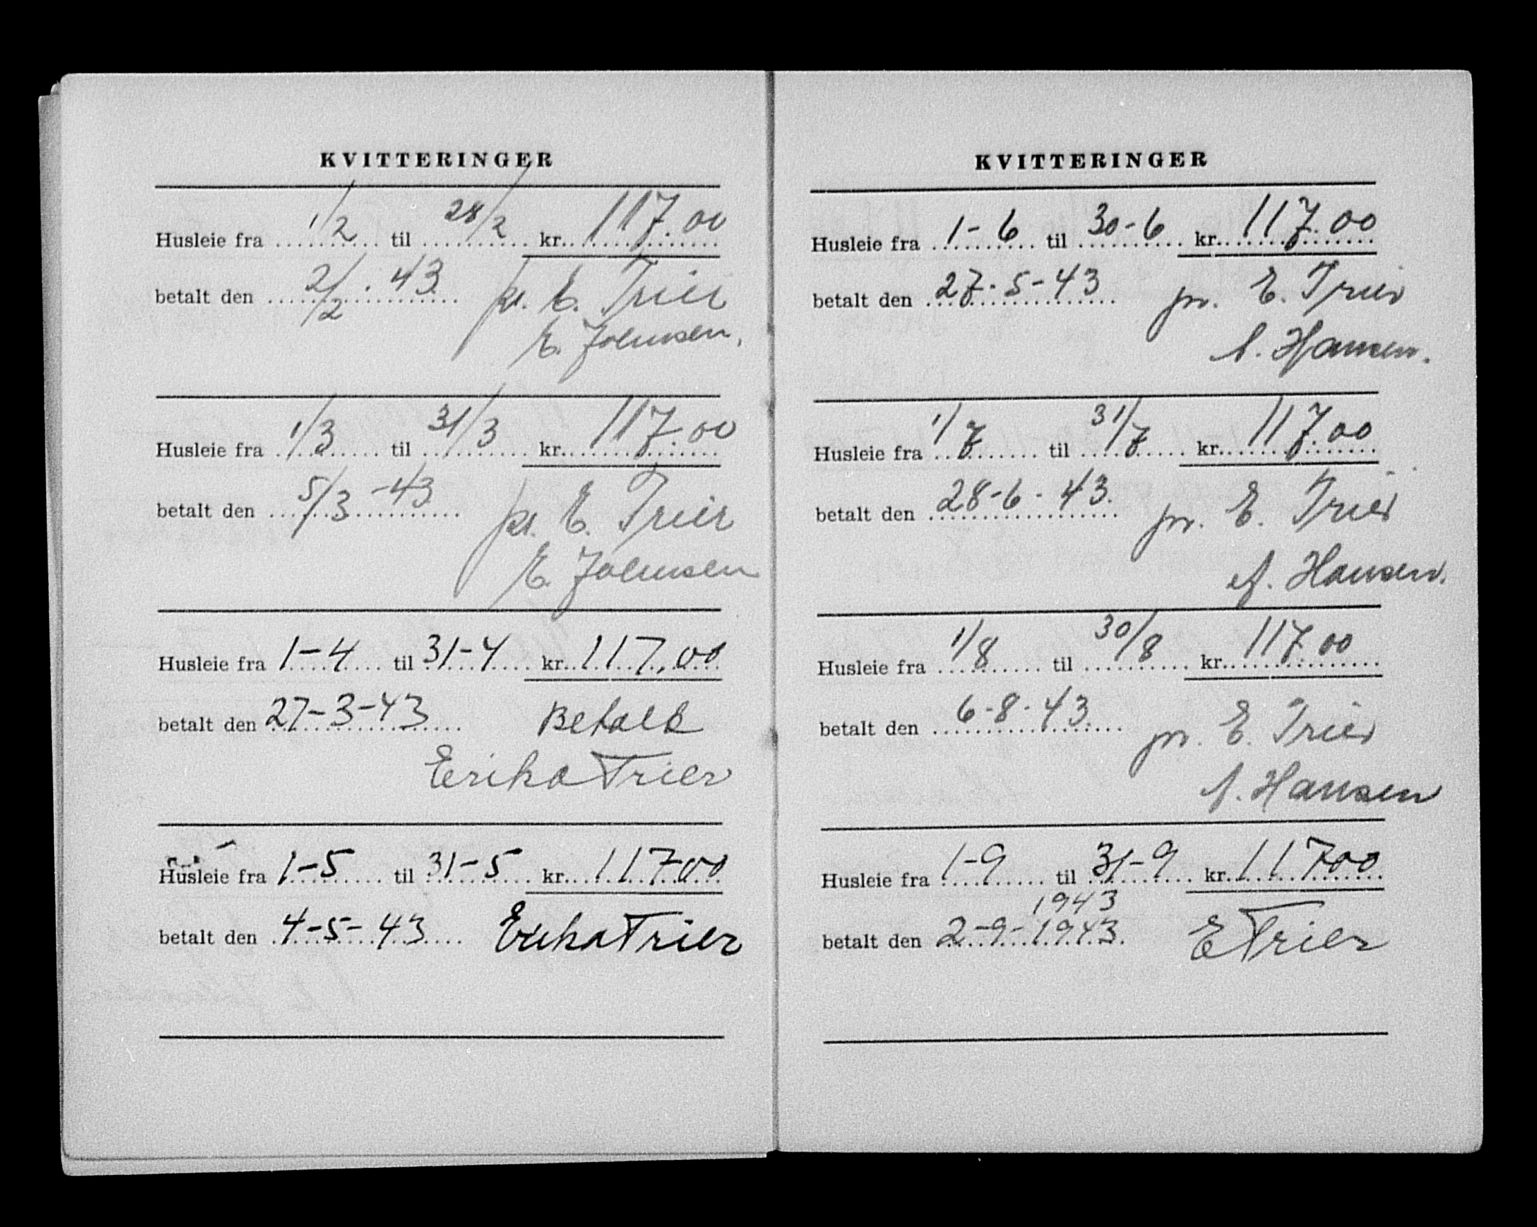 KVITTERINGER
Husleie fra 1/2 til 28/2 kr. 117.00
betalt den 2/2 . 43. pr. E. Trier
E. Johnsen.
Husleie fra 1/3 til 31/3 kr. 117.00
betalt den 5/3 -43 pr. E. Trier
E. Johnsen
Husleie fra 1-4 til 31-4 kr. 117,00
betalt den 27-3-43 Betalt
Erika Trier
Husleie fra 1-5 til 31-5 kr. 117-00
betalt den 4-5-43 Erika Trier
KVITTERINGER
Husleie fra 1-6 til 30-6 kr. 117.00
betalt den 27-5-43 pr. E. Trier
A. Hansen.
Husleie fra 1/7 til 31/7 kr. 117.00
betalt den 28-6-43. pr. E. Trier
A. Hansen.
Husleie fra 1/8 til 30/8 kr. 117.00
betalt den 6-8-43. pr. E. Trier
A. Hansen
Husleie fra 1-9 til 31-9 kr. 11700
1943
betalt den 2-9-1943. E Trier